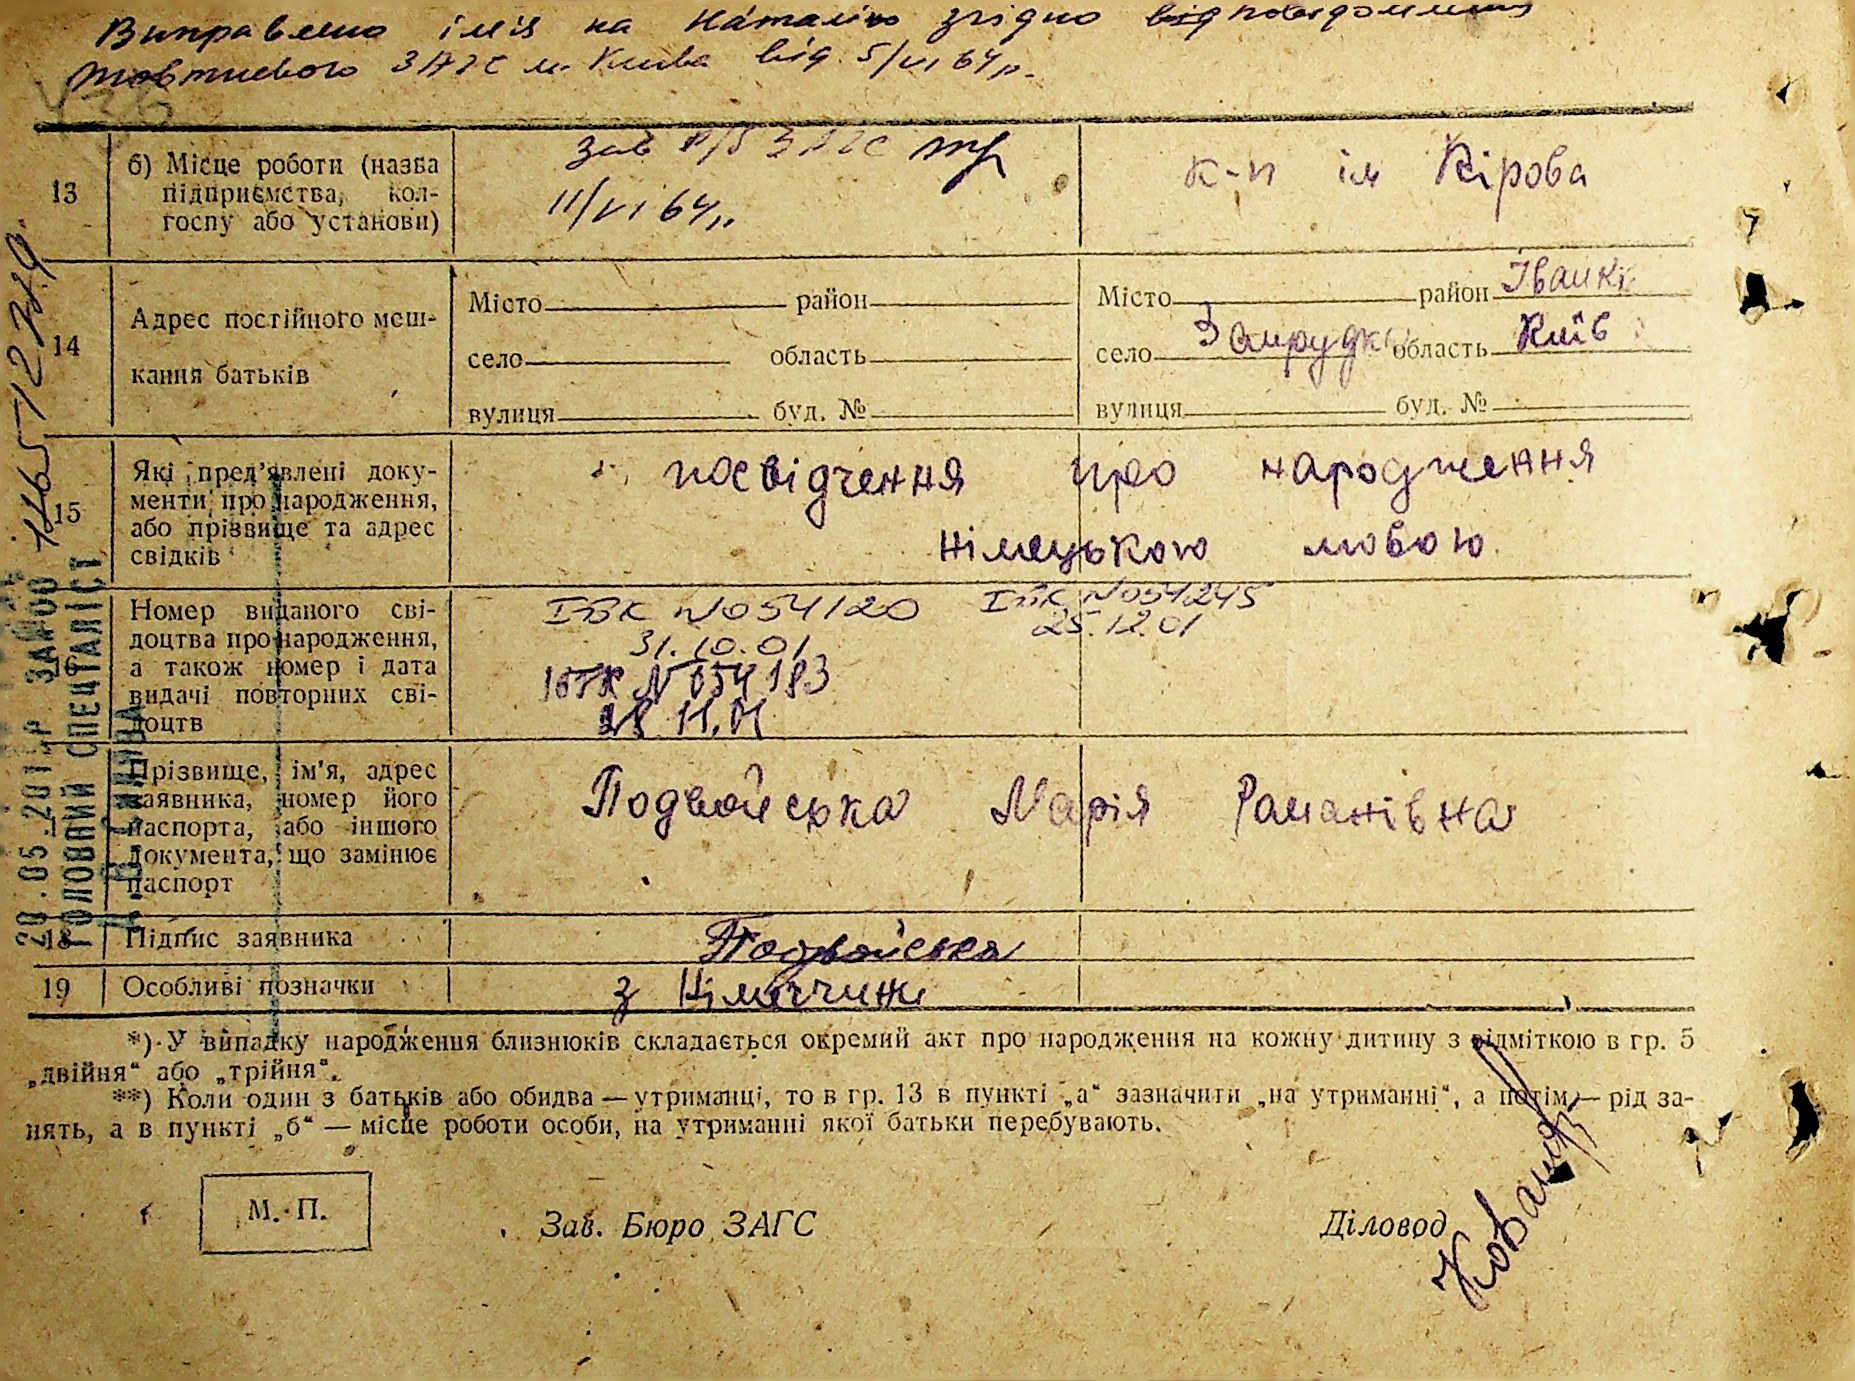 Виправлено ім'я на Наталію згідно відповідомлення
Жовтневого ЗАГС м. Києва від 5/VI 64 р.
13
б) Місце роботи (назва
підприємства, кол-
госпу або установи)
зав р/б ЗАГС
11/VI 64 р.
к-п ім Кірова
14
Адрес постійного меш-
кання батьків
Місто район
село область
вулиця буд. №
Місто район Іванкі
село Запрудка область Київ
вулиця буд. №
15
Які пред'явлені доку-
менти про народження,
або прізвище та адрес
свідків
посвідчення про народження
німецькою мовою
16
Номер виданого сві-
доцтва про народження,
а також номер і дата
видачі повторних сві-
доцтв
ІБК №054120
31.10.01
ІБК №054245
25.12.01
ІБК №054183
28 11.01
Прізвище, ім'я, адрес
заявника, номер його
паспорта, або іншого
документа, що замінює
паспорт
Подвойська Марія Романівна
18
Підпис заявника
Подвойська
19
Особливі позначки
з Німеччини
*) У випадку народження близнюків складається окремий акт про народження на кожну дитину з відміткою в гр. 5
„двійня“ або „трійня“.
**) Коли один з батьків або обидва — утриманці, то в гр. 13 в пункті „а“ зазначити „на утриманні“, а потім — рід за-
нять, а в пункті „б“ — місце роботи особи, на утриманні якої батьки перебувають.
М. П.
Зав. Бюро ЗАГС
Діловод
ГОЛОВНИЙ СПЕЦІАЛІСТ